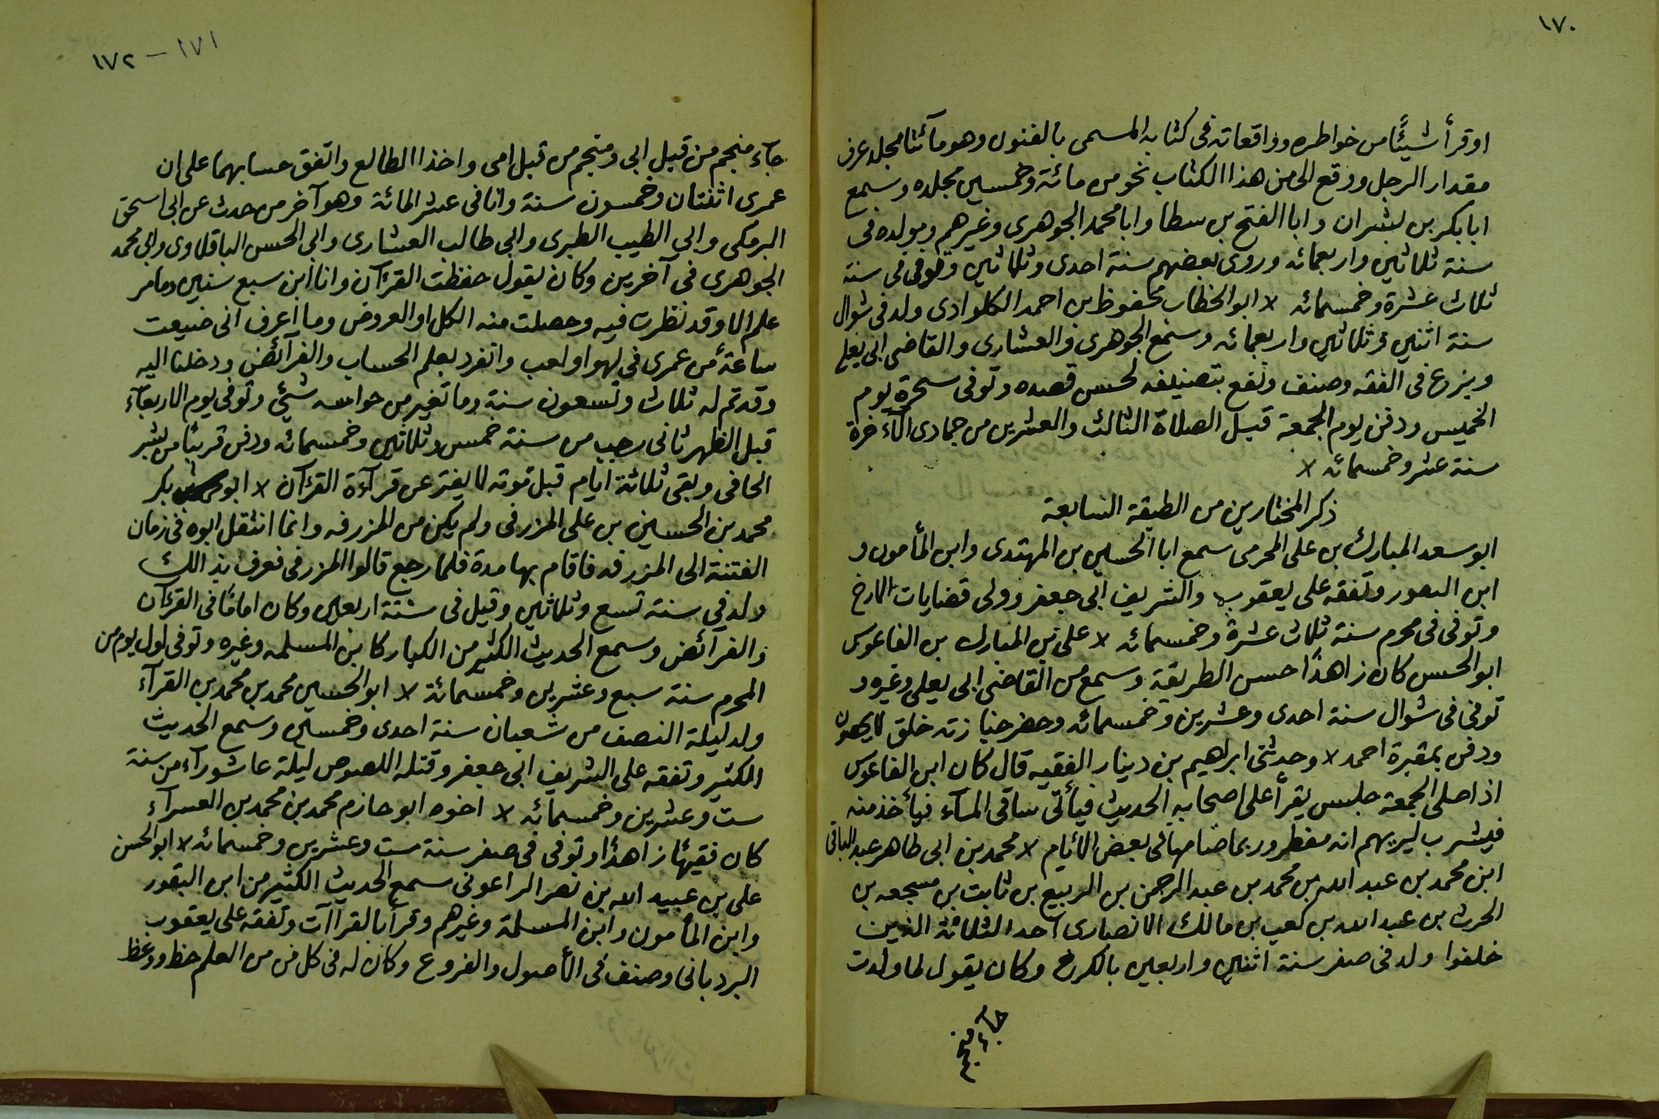 ١٧٠
او قرأ شيئًا من خواطره وواقعاته فى كتابه المسمى بالفنون وهو مآئتا مجلد عرف
مقدار الرجل ووقع الى من هذا الكتاب نحو من مائة وخمسين مجلده وسمع
ابا بكر بن بشران وابا الفتح بن سطا وابا محمد الجوهرى وغيرهم ومولده فى
سنة ثلاثين واربعمائه وروى بعضهم سنة احدى وثلاثين وتوفى فى سنة
ثلاث عشرة وخمسمائه × ابو الخطاب محفوظ بن احمد الكلوادى ولد فى شوال
سنة اثنين وثلاثين واربعمائه وسمع الجوهرى والعشارى والقاضى ابى يعلى
وبرع فى الفقه وصنف ونفع بتصنيفه لحسن قصده وتوفى سحرة يوم
الخميس ودفن يوم الجمعة قبل الصلاة الثالث والعشرين من جمادى الآخرة
سنة عشر وخمسمائه ×
ذكر المختارين من الطبقة السابعة
ابو سعد المبارك بن على المحرمى سمع ابا الحسين بن المهتدى وابن المأمون و
ابن النعور وتفقه على يعقوب والشريف ابى جعفر وولى قضايات الازج
وتوفى فى محرم سنة ثلاث عشرة وخمسمائه × على بن المبارك بن الفاعوس
ابو الحسن كان زاهدًا حسن الطريقة وسمع من القاضى ابى يعلى وغيره و
توفى فى شوال سنة احدى وعشرين وخمسمائه وحضر جنازته خلق لا يحصون
ودفن بمقبرة احمد × وحدثنى ابراهيم بن دينار الفقيه قال كان ابن الفاعوس
اذا صلى الجمعة جلس يقرأ على اصحابه الحديث فيأتى ساقى المآء فيأخذ منه
فيشرب ليريهم انه مفطر وربما صامها فى بعض الايام × محمد بن ابى طاهر عبد الباقى
ابن محمد بن عبد الله بن محمد بن عبد الرحمن بن الربيع بن ثابت بن مسجعه بن
الحرث بن عبد الله بن كعب بن مالك الانصارى احد الثلاثة الذين
خلفوا ولد فى صفر سنة اثنين واربعين بالكرخ وكان يقول لما ولدت
جآء منجم
١٧١ – ١٧٢
جآء منجم من قبل ابى ومنجم من قبل امى واخذا الطالع واتفق حسابهما على ان
عمرى اثنتان وخمسون سنة وانا فى عشر المائة وهو آخر من حدث عن ابى اسحق
البرمكى وابى الطيب الطبرى وابى طالب العشارى وابى الحسن الباقلاوى وابى محمد
الجوهرى فى آخرين وكان يقول حفظت القرآن وانا ابن سبع سنين وما من
علم الا وقد نظرت فيه وحصلت منه الكل او العروض وما اعرف انى ضيعت
ساعة من عمرى فى لهو او لعب وانفرد بعلم الحساب والفرآئض ودخلنا اليه
وقد تم له ثلاث وتسعون سنة وما تغير من حواسه شئ وتوفى يوم الاربعآء
قبل الظهر ثانى رجب من سنة خمس وثلاثين وخمسمائه ودفن قريبًا من بشر
الحافى وبقى ثلاثة ايام قبل موته لا يفتر عن قرآءة القرآن × ابو بكر
محمد بن الحسين بن على المزرفى ولم يكن من المزرفه وانما انتقل ابوه فى زمان
الفتنة الى المزرفه فاقام بها مدة فلما رجع قالوا المزرفى فعرف بذالك
ولد فى سنة تسع وثلاثين وقيل فى سنة اربعين وكان امامًا فى القرءان
والفرآئض وسمع الحديث الكثير من الكبار كابن المسلمه وغيره وتوفى اول يوم من
المحرم سنة سبع وعشرين وخمسمائة × ابو الحسين محمد بن محمد بن الفرآء
ولد ليلة النصف من شعبان سنة احدى وخمسين وسمع الحديث
الكثير وتفقه على الشريف ابى جعفر وقتله اللصوص ليلة عاشورآء من سنة
ست وعشرين وخمسمائه × اخوه ابو حازم محمد بن محمد بن الفرآء
كان فقيهًا زاهدًا وتوفى فى صفر سنة ست وعشرين وخمسمائه × ابو الحسن
على بن عبيد الله بن نصر الراعونى سمع الحديث الكثير من ابن البقور
وابن المأمون وابن المسلمة وغيرهم وقرأ بالقراآت وتفقه على يعقوب
البردبانى وصنف فى الأصول والفروع وكان له فى كل فن من العلم حظ ووعظ